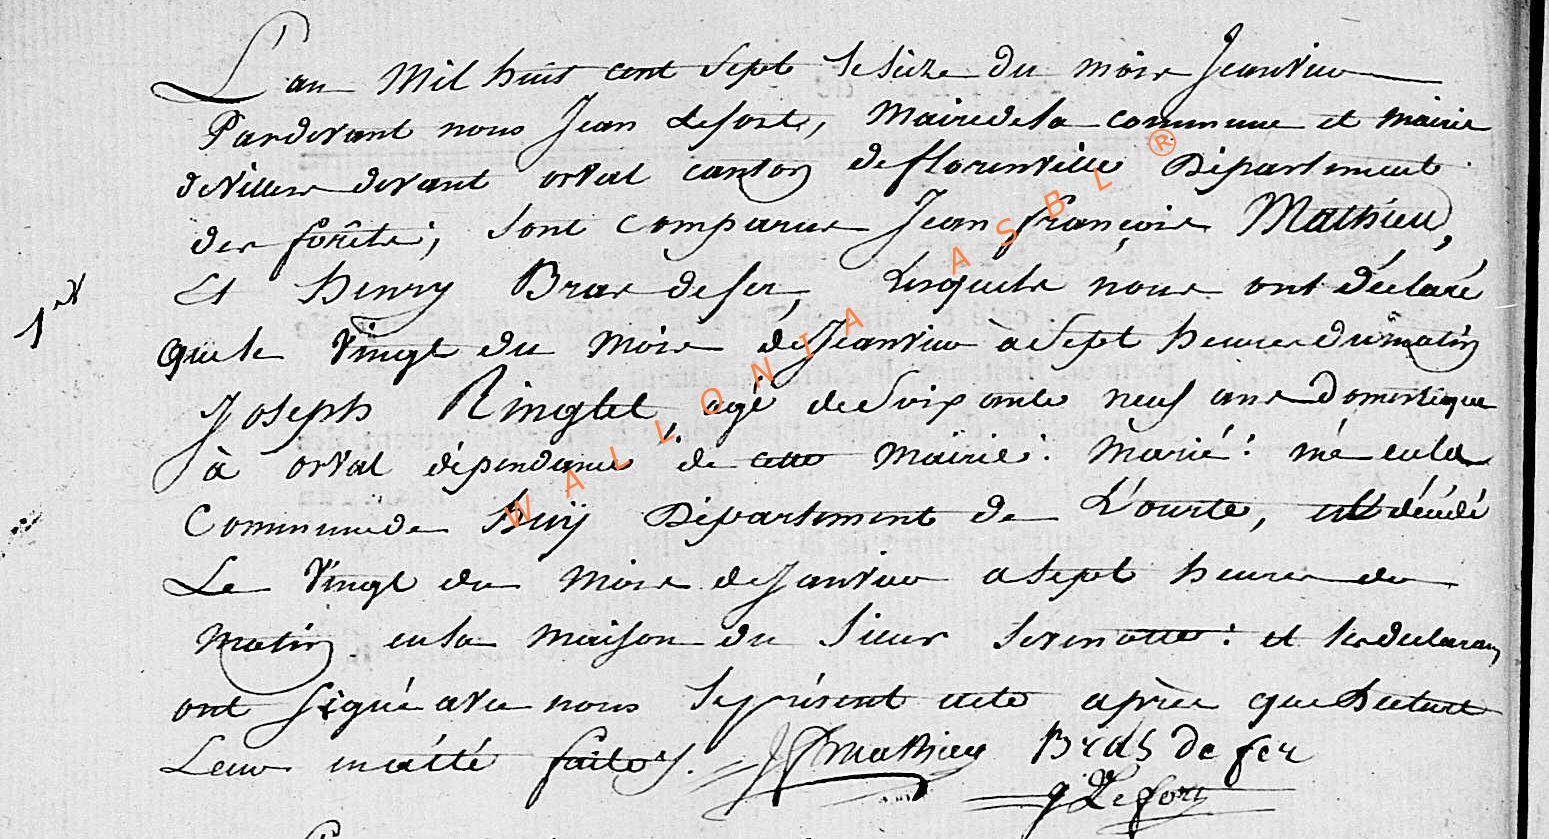 L'an Mil huit cent Sept le seize du mois Jeanvier
Pardevant nous Jean Lefort, Maire de la commune et mairie
de Villers devant orval canton de florenville Département
des forêts, sont comparus Jean françois Mathieu,
Et henry Bras de fer, Lesquels nous ont déclaré
que le vingt du mois de Jeanvier à Sept heures du matin
Joseph Ringlet, agé de Soixante neuf ans Domestique
à orval dépendance de cette Mairie: Marié: né en la
Commune de huÿ Département de L'ourte, est décédé
Le vingt du mois de Janvier a Sept heures du
matin en sa maison du Sieur : et les declarans
ont Signé avec nous le présent acte après que Lecture
Leur en a été faite.
1er
JF Mathieu Bras de fer
J Lefort
WALLONIA ASBL ®